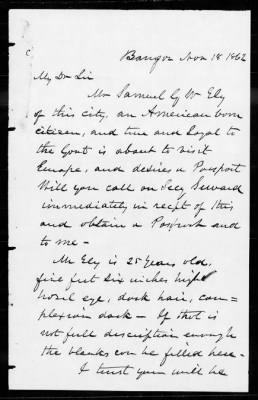 Bangor Nov 18 1862
My Dr Sir
Mr Samuel G W Ely
of this city, an American born
citizen, and true and loyal to
the Govt is about to visit
Europe, and desires a Passport
Will you call on Secy Seward
immediately in recpt of this
and obtain a Passport and
to me -
Mr Ely is 25 Years old,
five feet six inches high
hazel eye, dark hair, com=
plexion dark - If that is
not full description enough
the blanks can be filled here -
I trust you will be